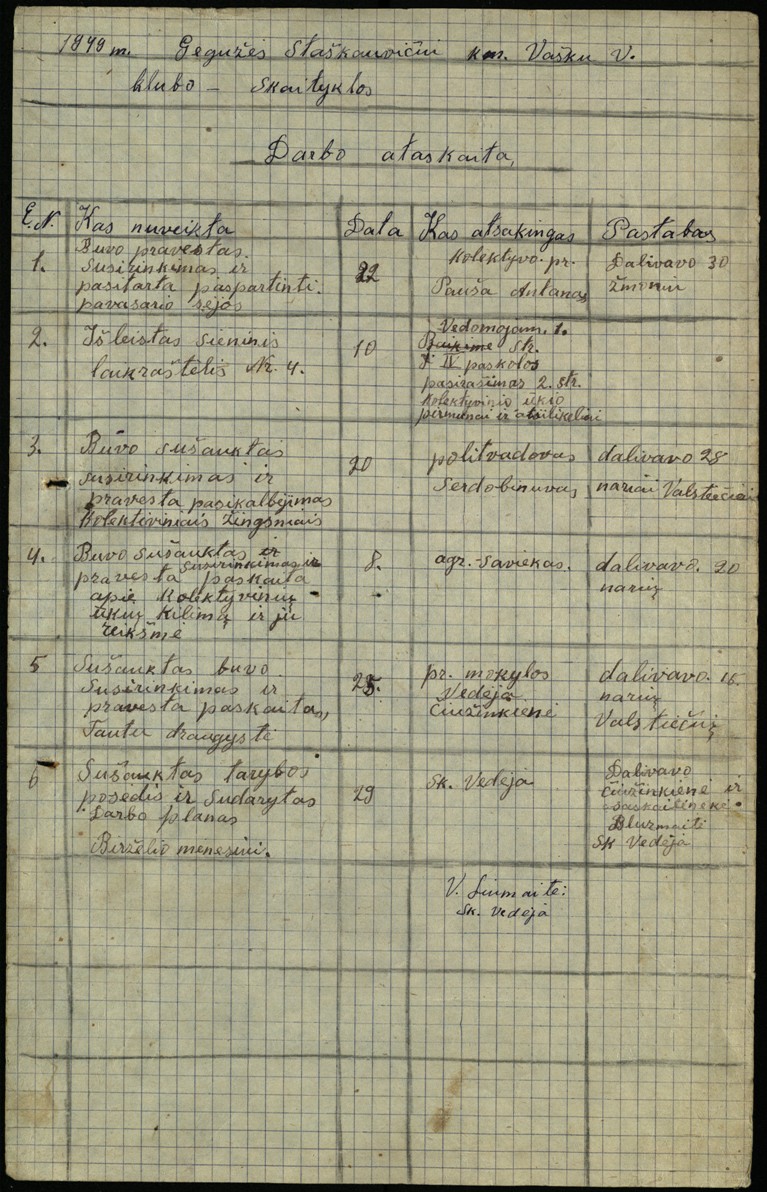 1949 m. Gegužės Staškauvičiu km. Vašku V.
klubo - skaityklos
Darbo ataskaita,
E.N. Kas nuveikta Data Kas atsakingas Pastabos
1. Buvo pravestas.
Susirinkimas ir
pasitarta paspartinti.
pavasario sėjos
22
kolektyvo. pr.
Pauša Antanas
Dalivavo 30
žmonių
2. Išleistas sieninis
laukraštelis Nr. 4.
10
Vedomojam. 1.
str.
IV paskolos
pasirašimas 2. str.
Kolektyvinio ūkio
pirmunai ir atsilikėliai
3. Buvo sušauktas
susirinkimas ir
pravesta pasikalbėjimas
Kolektiviniais žingsniais
20
politvadovas
Serdobinuvas
dalivavo 28
nariai Valstiečiai
4. Buvo sušauktas ir
susirinkimas ir
pravesta paskaita
apie Kolektyvinių
ūkių kilimą ir jų
reikšmė
8.
agr. Saviekas.
dalivavo. 20
narių
5 Sušauktas buvo
Susirinkimas ir
pravesta paskaitas,
Tautu draugystė
25.
pr. mokylos
Vedėja
Čiužinkienė
dalivavo. 15.
narių
Valstiečių
6 Sušauktas tarybos
posėdis ir Sudarytas
Darbo planas
Birželio mėnesiui.
29
Sk. Vedėja
Dalivavo
čiužinkienė ir
Sk Vedėja
V.
Sk. vedėja